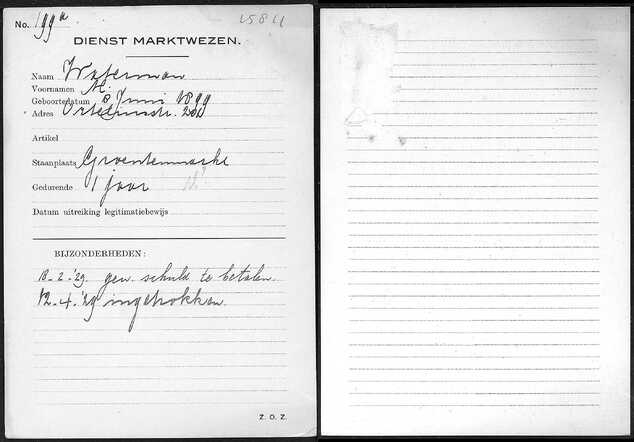 No. 199a
15811
DIENST MARKTWEZEN.
Naam Waterman
Voornamen M.
Geboortedatum 8 Juni 1899
Adres Orteliusstr.
Artikel
Staanplaats Groentemarkt
Gedurende 1 jaar
Datum uitreiking legitimatiebewijs
BIJZONDERHEDEN:
18-2-'29. gen. schuld te betalen.
12-4-'29 ingetrokken.
Z. O. Z.